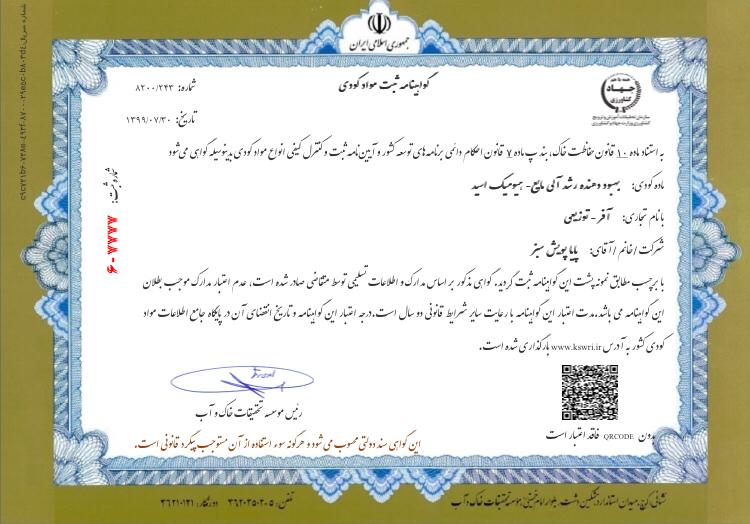 جمهوری اسلامی ایران
گواهینامه ثبت مواد کودی
شماره: ۸۲۰۰/۲۴۳
تاریخ: ۱۳۹۹/۰۷/۳۰
همه با هم
جهاد
کشاورزی
سازمان تحقیقات، آموزش و ترویج
کشاورزی وزارت جهاد کشاورزی
به استناد ماده ۱۰ قانون حفاظت خاک، بند پ ماده ۷ قانون احکام دائمی برنامه های توسعه کشور و آیین نامه ثبت و کنترل کیفی انواع مواد کودی بدینوسیله گواهی می شود
ماده کودی: بهبود دهنده رشد آلی مایع- هیومیک اسید
با نام تجاری: آفر - توزیعی
شرکت / خانم / آقای: پایا پویش سبز
با برچسب مطابق نمونه پشت این گواهینامه ثبت گردید. گواهی مذکور بر اساس مدارک و اطلاعات تسلیمی توسط متقاضی صادر شده است، عدم اعتبار مدارک موجب بطلان
این گواهینامه می باشد. مدت اعتبار این گواهینامه با رعایت سایر شرایط قانونی دو سال است. درجه اعتبار این گواهینامه و تاریخ انقضای آن در پایگاه جامع اطلاعات مواد
کودی کشور به آدرس www.kswri.ir بارگذاری شده است.
شماره ثبت: ۶۰۷۷۷۷
رئیس موسسه تحقیقات خاک و آب
بدون QRCODE فاقد اعتبار است
این گواهی سند دولتی محسوب می شود و هرگونه سوء استفاده از آن مستوجب پیگرد قانونی است.
نشانی: کرج، میدان استاندارد، مشکین دشت، بلوار امام خمینی، موسسه تحقیقات خاک و آب
تلفن: ۵-۳۶۲۰۲۵۰۲ دورنگار: ۳۶۲۱۰۱۲۱
شماره سریال: